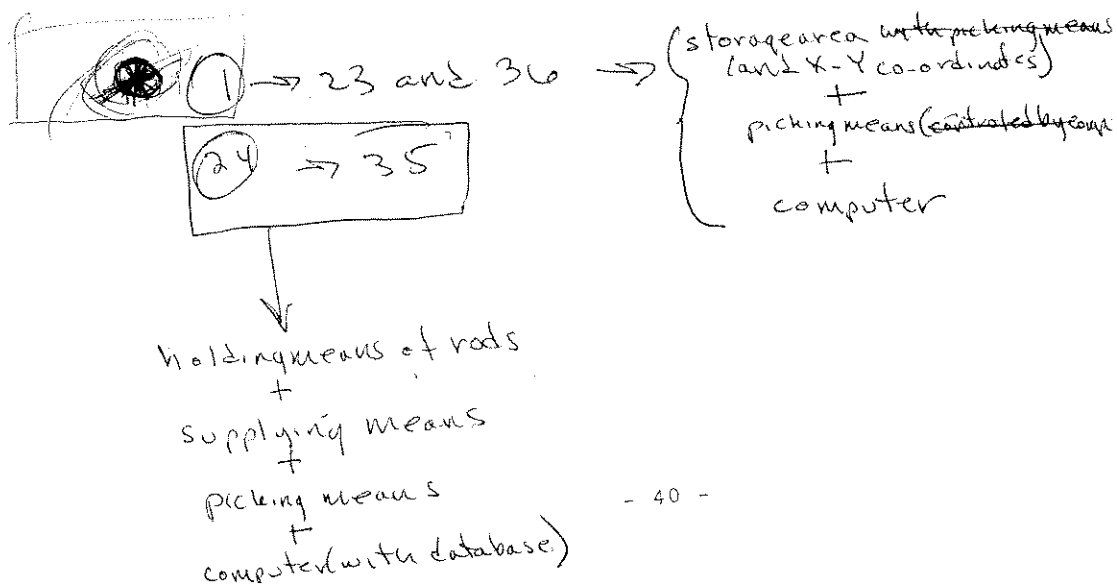 1 → 23 and 36 → storage area with picking means
(and X-Y co-ordinates)
+
picking means (controlled by comp.
+
computer
24 → 35
holding means of rods
+
supplying means
+
picking means
+
computer (with database)
- 40 -